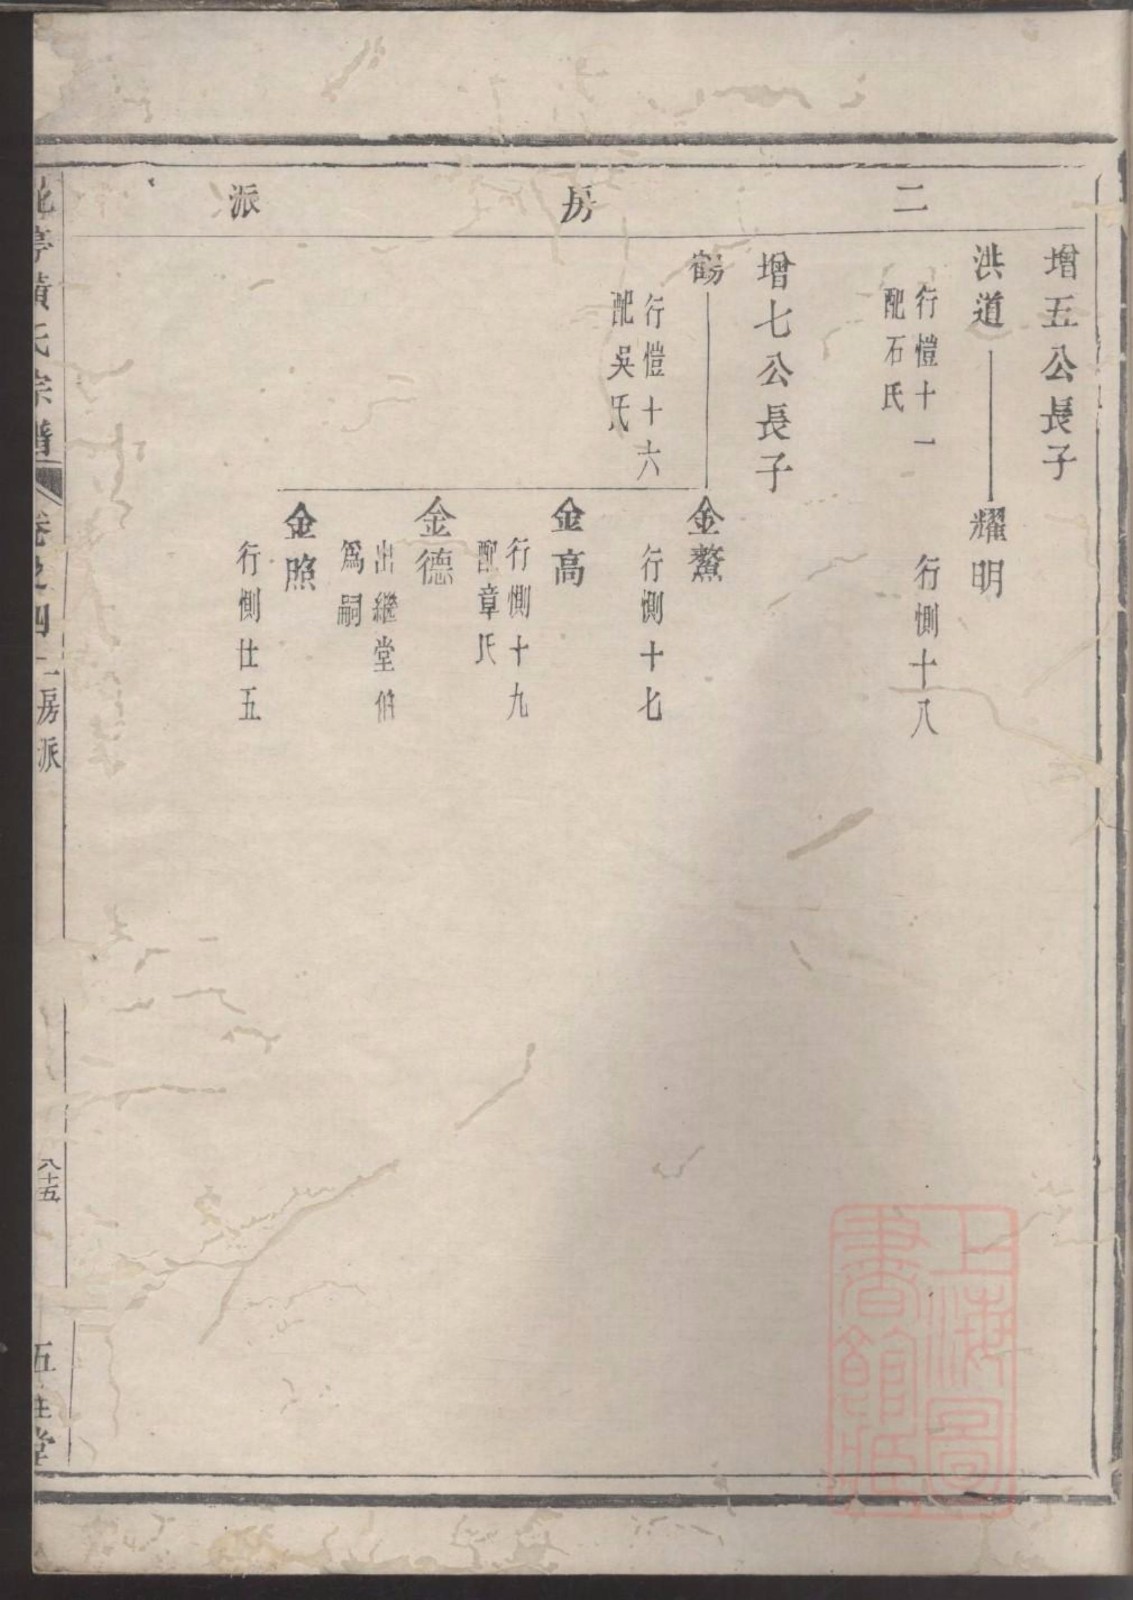 二房派
增五公長子
洪道
行愷十一
配石氏
耀明
行惻十八
增七公長子
鶴
行愷十六
配吳氏
金鰲
行惻十七
金高
行惻十九
配章氏
金德
出繼堂伯
爲嗣
金照
行惻仕五
亭黃氏宗譜
卷之四
房派
八十五
五桂堂
上海圖
書館藏